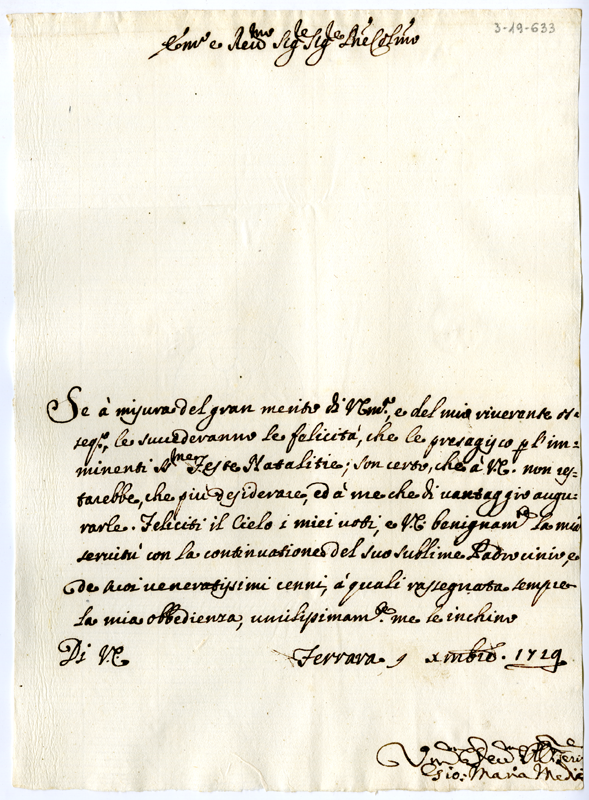 3-19-633
Em.º e Reu.mo Sig.re Sig.re P.ne Col.mo
Se à misura del gran merito di V. Em.ª, e del mio riverente os=
seq.º, le succederanno le felicità, che le presagisco p l'im=
minenti SS.me Feste Natalitie; son certo, che à V.E. non res=
tarebbe, che più desiderare, ed à me che di vantaggio augu=
rarle. Feliciti il Cielo i miei voti, e V.E. benignam.te la mia
servitù con la continuatione del suo sublime Padrocinio, e
de suoi veneratissimi cenni, à quali rassegnata sempre
la mia obbedienza, umilissimam.te me le inchino
Di V.E. Ferrara 9 xmbre. 1729
Gio: Maria